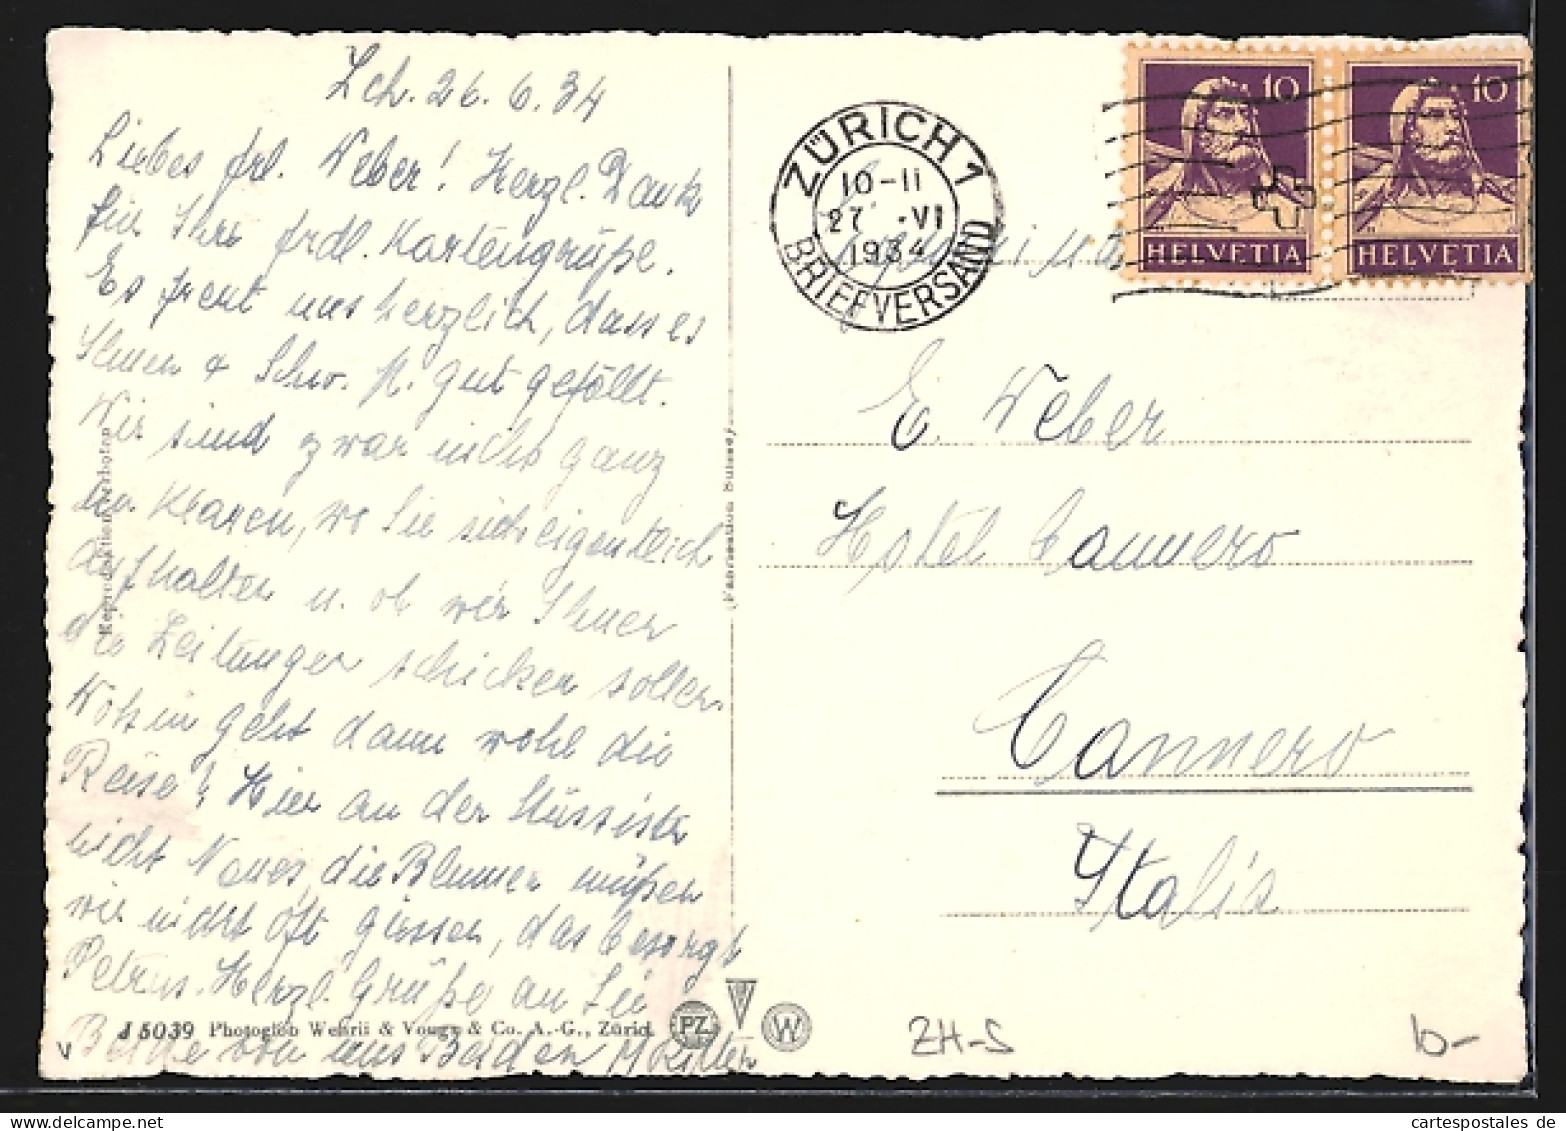 Zch. 26.6.34
Liebes Frl. Weber! Herzl. Dank
für Ihre frdl. Kartengrüße.
Es freut uns herzlich, dass es
Ihnen & Schw. M. gut gefällt.
Wir sind zwar nicht ganz
im Klaren, wo Sie sich eigentlich
aufhalten u. ob wir Ihnen
die Zeitungen schicken sollen.
Wohin geht dann wohl die
Reise! Hier an der
nicht Neues, die Blumen müßen
wir nicht oft giessen, das besorgt
Petrus. Herzl. Grüße an Sie
Beide von uns Beiden
J 5039 Photoglob Wehrli & Vouga & Co. A.-G., Zürich
PZ
W
Reproduktion verboten
(Fabrication Suisse)
ZÜRICH 1
10-11
27. VI
1934
BRIEFVERSAND
10
HELVETIA
10
HELVETIA
E. Weber
Hotel Cannero
Cannero
Italia
ZH-S
b-
v
cartespostales de